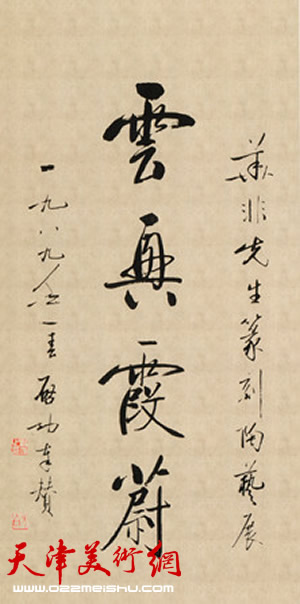 華非先生篆刻陶藝展
雲興霞蔚
一九八九 春 啟功奉贊
天津美術網
www.022meishu.com